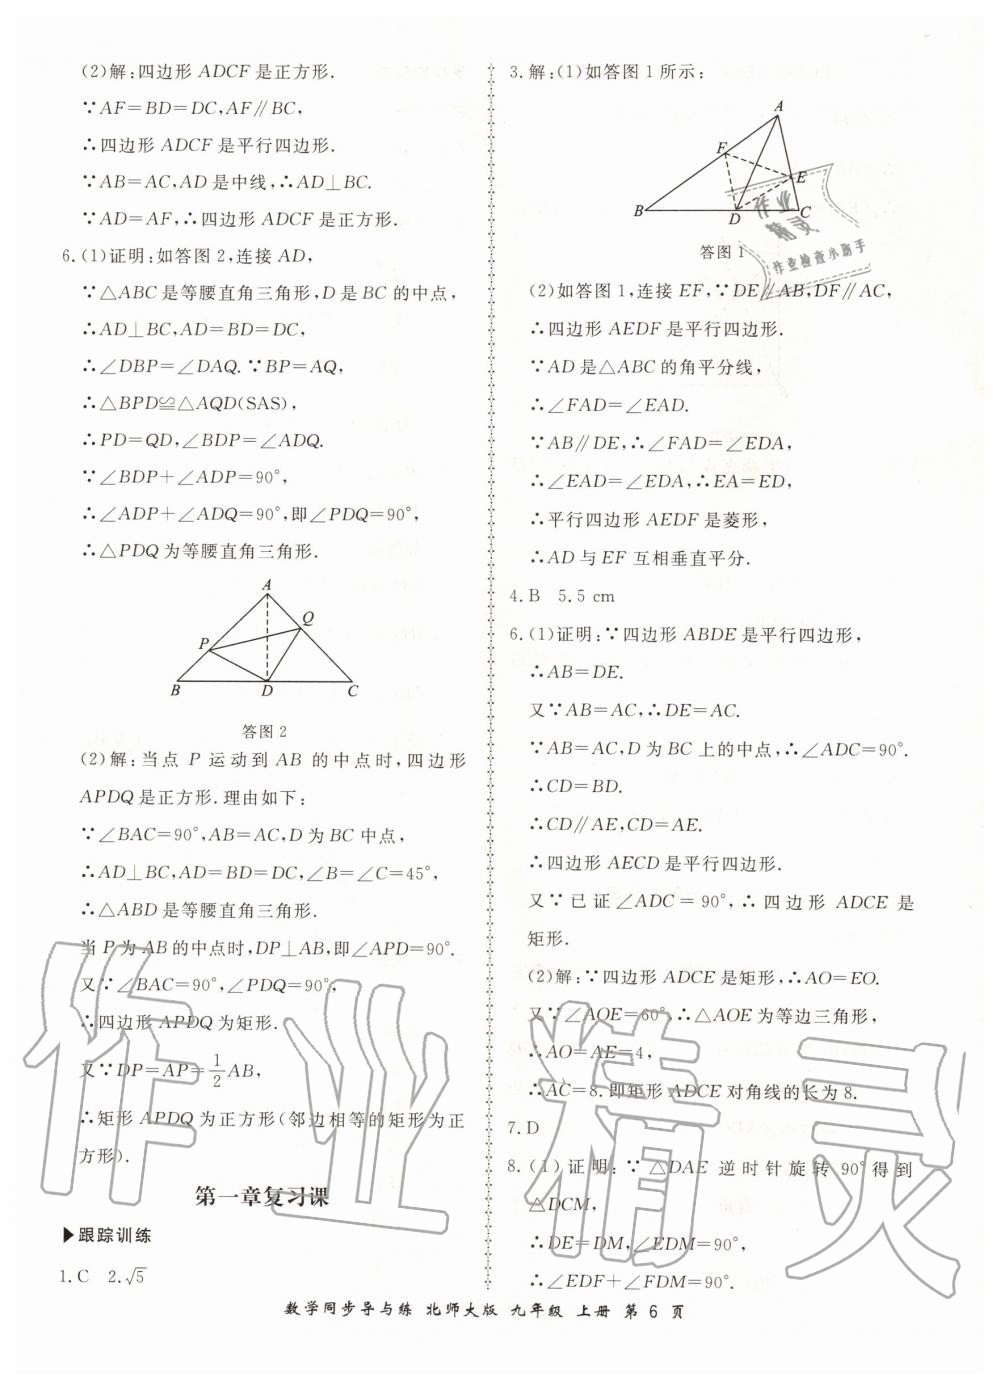 (2)解:四边形 ADCF 是正方形.
∵AF=BD=DC,AF∥BC,
∴四边形 ADCF 是平行四边形.
∵AB=AC,AD是中线,∴AD⊥BC.
∵AD=AF,∴四边形 ADCF 是正方形.
6.(1)证明:如答图 2,连接 AD,
∵△ABC是等腰直角三角形,D是BC的中点,
∴AD⊥BC,AD=BD=DC,
∴∠DBP=∠DAQ.∵BP=AQ,
∴△BPD≌△AQD(SAS),
∴PD=QD,∠BDP=∠ADQ.
∵∠BDP+∠ADP=90°,
∴∠ADP+∠ADQ=90°,即∠PDQ=90°,
∴△PDQ为等腰直角三角形.
A
Q
P
B D C
答图 2
(2)解:当点 P 运动到 AB 的中点时,四边形
APDQ是正方形.理由如下:
∵∠BAC=90°,AB=AC,D为BC中点,
∴AD⊥BC,AD=BD=DC,∠B=∠C=45°,
∴△ABD是等腰直角三角形.
当P为AB的中点时,DP⊥AB,即∠APD=90°.
又∵∠BAC=90°,∠PDQ=90°,
∴四边形APDQ为矩形.
又∵DP=AP=1/2AB,
∴矩形APDQ为正方形(邻边相等的矩形为正
方形).
第一章复习课
▶跟踪训练
1.C 2.√5
3.解:(1)如答图 1所示:
A
F
E
B D C
答图 1
(2)如答图 1,连接 EF,∵DE∥AB,DF∥AC,
∴四边形 AEDF是平行四边形.
∵AD是△ABC的角平分线,
∴∠FAD=∠EAD.
∵AB∥DE,∴∠FAD=∠EDA,
∴∠EAD=∠EDA,∴EA=ED,
∴平行四边形 AEDF是菱形,
∴AD 与 EF 互相垂直平分.
4.B 5.5 cm
6.(1)证明:∵四边形 ABDE是平行四边形,
∴AB=DE.
又∵AB=AC,∴DE=AC.
∵AB=AC,D为BC上的中点,∴∠ADC=90°.
∴CD=BD.
∴CD∥AE,CD=AE.
∴四边形 AECD是平行四边形.
又∵已证∠ADC=90°,∴四边形 ADCE 是
矩形.
(2)解:∵四边形 ADCE是矩形,∴AO=EO.
又∵∠AOE=60°,∴△AOE为等边三角形,
∴AO=AE=4,
∴AC=8.即矩形 ADCE对角线的长为8.
7.D
8.(1)证明:∵△DAE 逆时针旋转 90°得到
△DCM,
∴DE=DM,∠EDM=90°,
∴∠EDF+∠FDM=90°.
数学同步导与练 北师大版 九年级 上册 第 6 页
作业
精灵
作业检查小助手
作业精灵